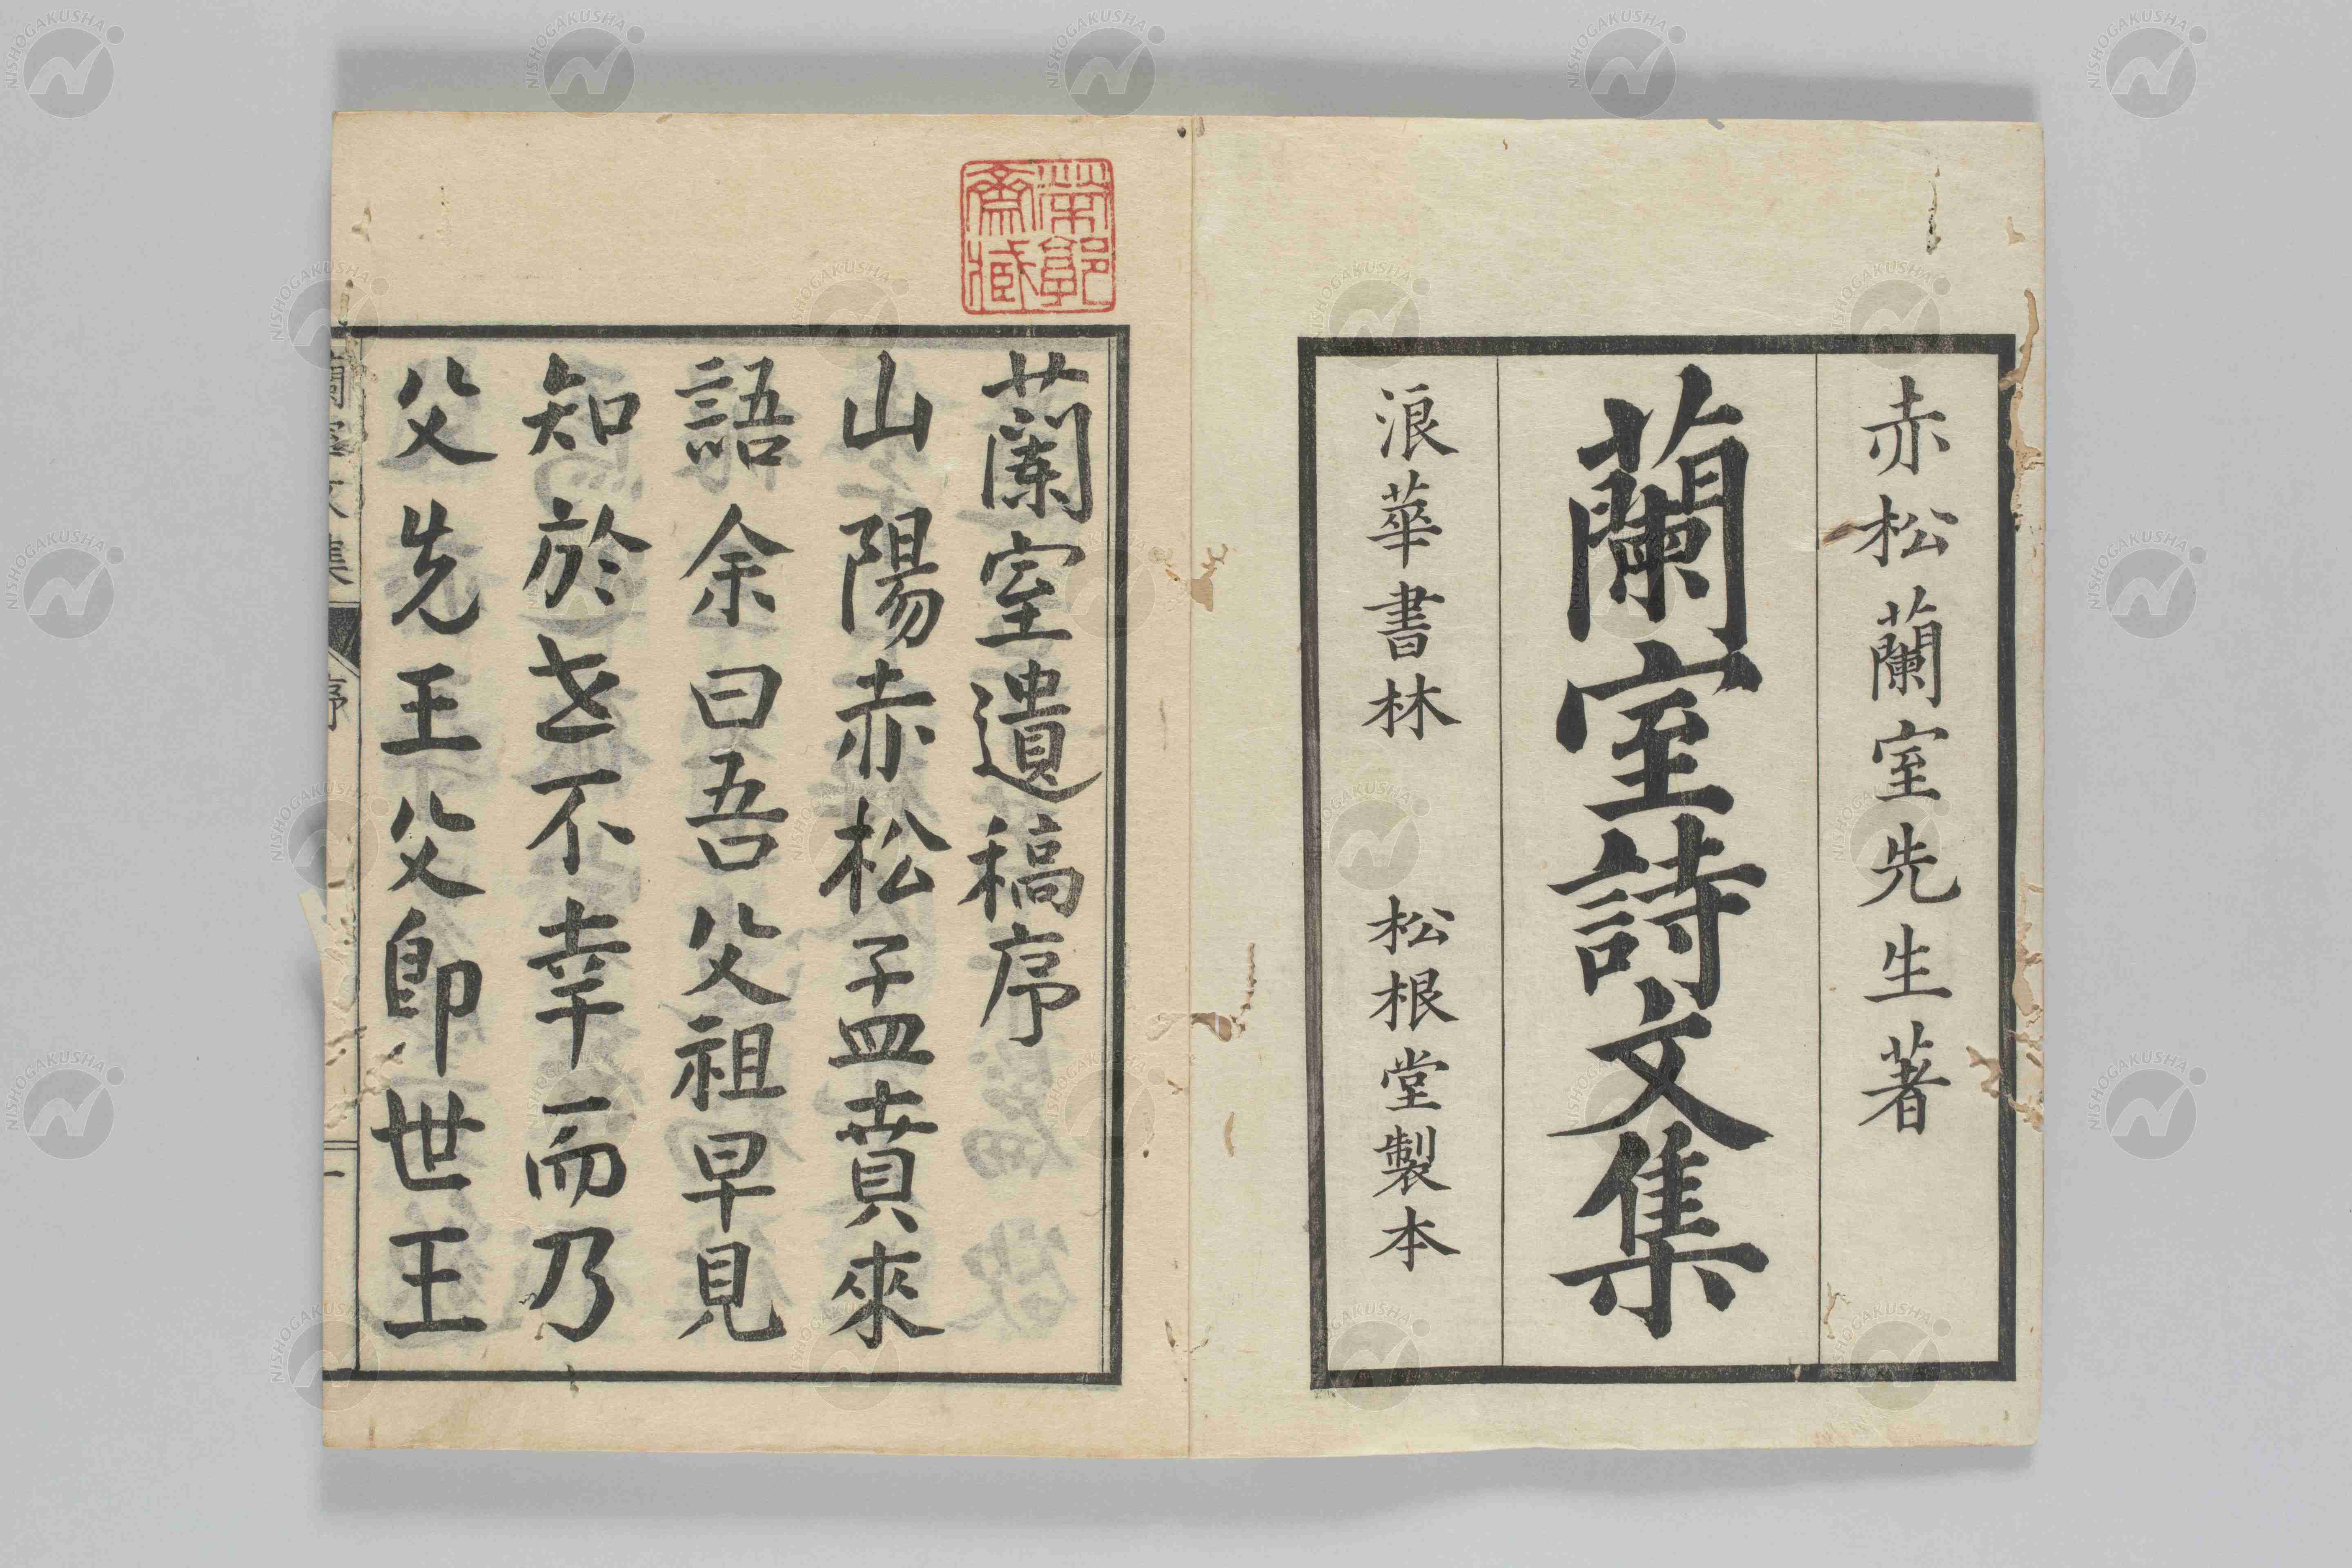 赤松蘭室先生著
蘭室詩文集
浪華書林　松根堂製本
帶郭
齋藏
蘭室遺稿序
山陽赤松孟賁來
語余曰吾父祖早見
知於不幸而乃
父先王父即世王
蘭室文集　序　一
NISHOGAKUSHA